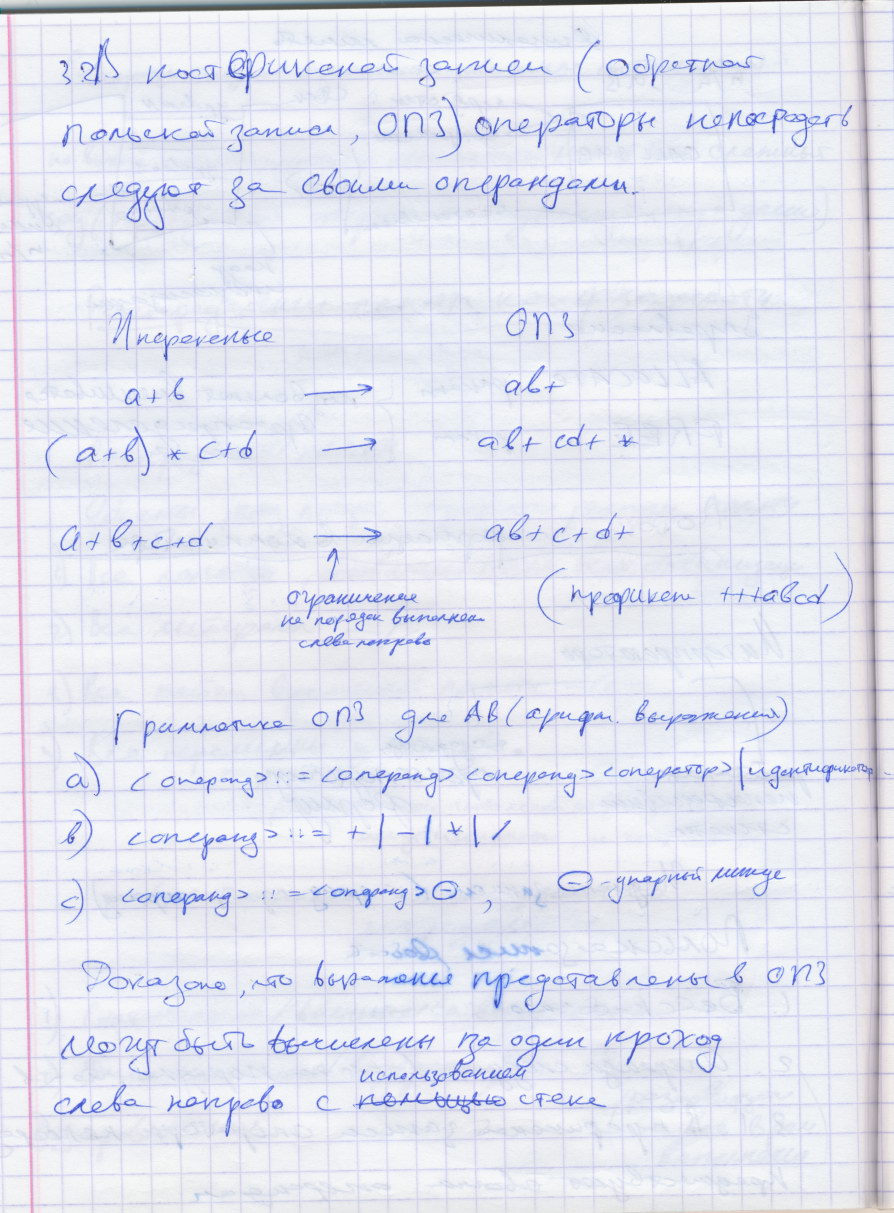 32) В постфиксной записи (обратной
польской записи, ОПЗ) операторы непосредств
следуют за своими операндами.
Инфиксные ОПЗ
a+b → ab+
(a+b) * c+d → ab+ cd+ *
a+b+c+d. → ab+c+d+
ограничение
на порядок выполнен
слева направо
(префиксн +++abcd)
Грамматика ОПЗ для АВ (арифм. выражения)
a) <операнд> ::= <операнд> <операнд> <оператор> | идентификатор
b) <операнд> ::= + | - | * | /
c) <операнд> ::= <операнд> ⊖ , ⊖ - унарный минус
Доказано, что выражения представлены в ОПЗ
могут быть вычислены за один проход
использованием
слева направо с помощью стека